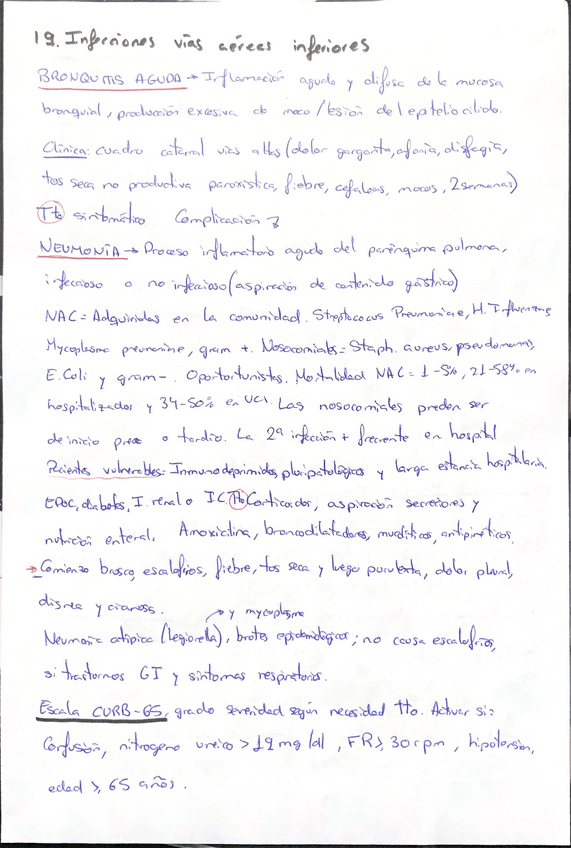 19. Infecciones vías aéreas inferiores
BRONQUITIS AGUDA → Inflamación aguda y difusa de la mucosa
bronquial, producción excesiva de moco/lesión del epitelio ciliado.
Clínica: cuadro catarral vías altas (dolor garganta, afonía, disfagia,
tos seca no productiva paroxística, fiebre, cefaleas, mocos, 2 semanas)
Tto sintomático Complicación
NEUMONÍA → Proceso inflamatorio agudo del parénquima pulmonar,
infeccioso o no infeccioso (aspiración de contenido gástrico)
NAC = Adquiridas en la comunidad. Streptococus Pneumoniae, H. Influenzae,
Mycoplasma pneumoniae, gram +. Nosocomiales = Staph. aureus, pseudomonas,
E. Coli y gram -. Oportortunistas. Mortalidad NAC = 1-5%, 21-58% en
hospitalizados y 34-50% en UCI. Las nosocomiales pueden ser
de inicio o tardío. La 2ª infección + frecuente en hospital
Pacientes vulnerables: Inmunodeprimidos, pluripatológicos y larga estancia hospitalaria.
EPOC, diabetes, I. renal o IC. Tto Corticoides, aspiración secreciones y
nutrición enteral. Amoxicilina, broncodilatadores, mucolíticos, antipiréticos.
→ Comienzo brusco, escalofríos, fiebre, tos seca y luego purulenta, dolor pleural,
disnea y cianosis.
→ y mycoplasma
Neumonía atípica (legionella), brotes epidemiológicos; no causa escalofríos,
si trastornos GI y síntomas respiratorios.
Escala CURB-65, grado severidad según necesidad tto. Activar si:
Confusión, nitrogeno ureico > 19 mg/dl, FR ≥ 30 rpm, hipotensión,
edad ≥ 65 años.